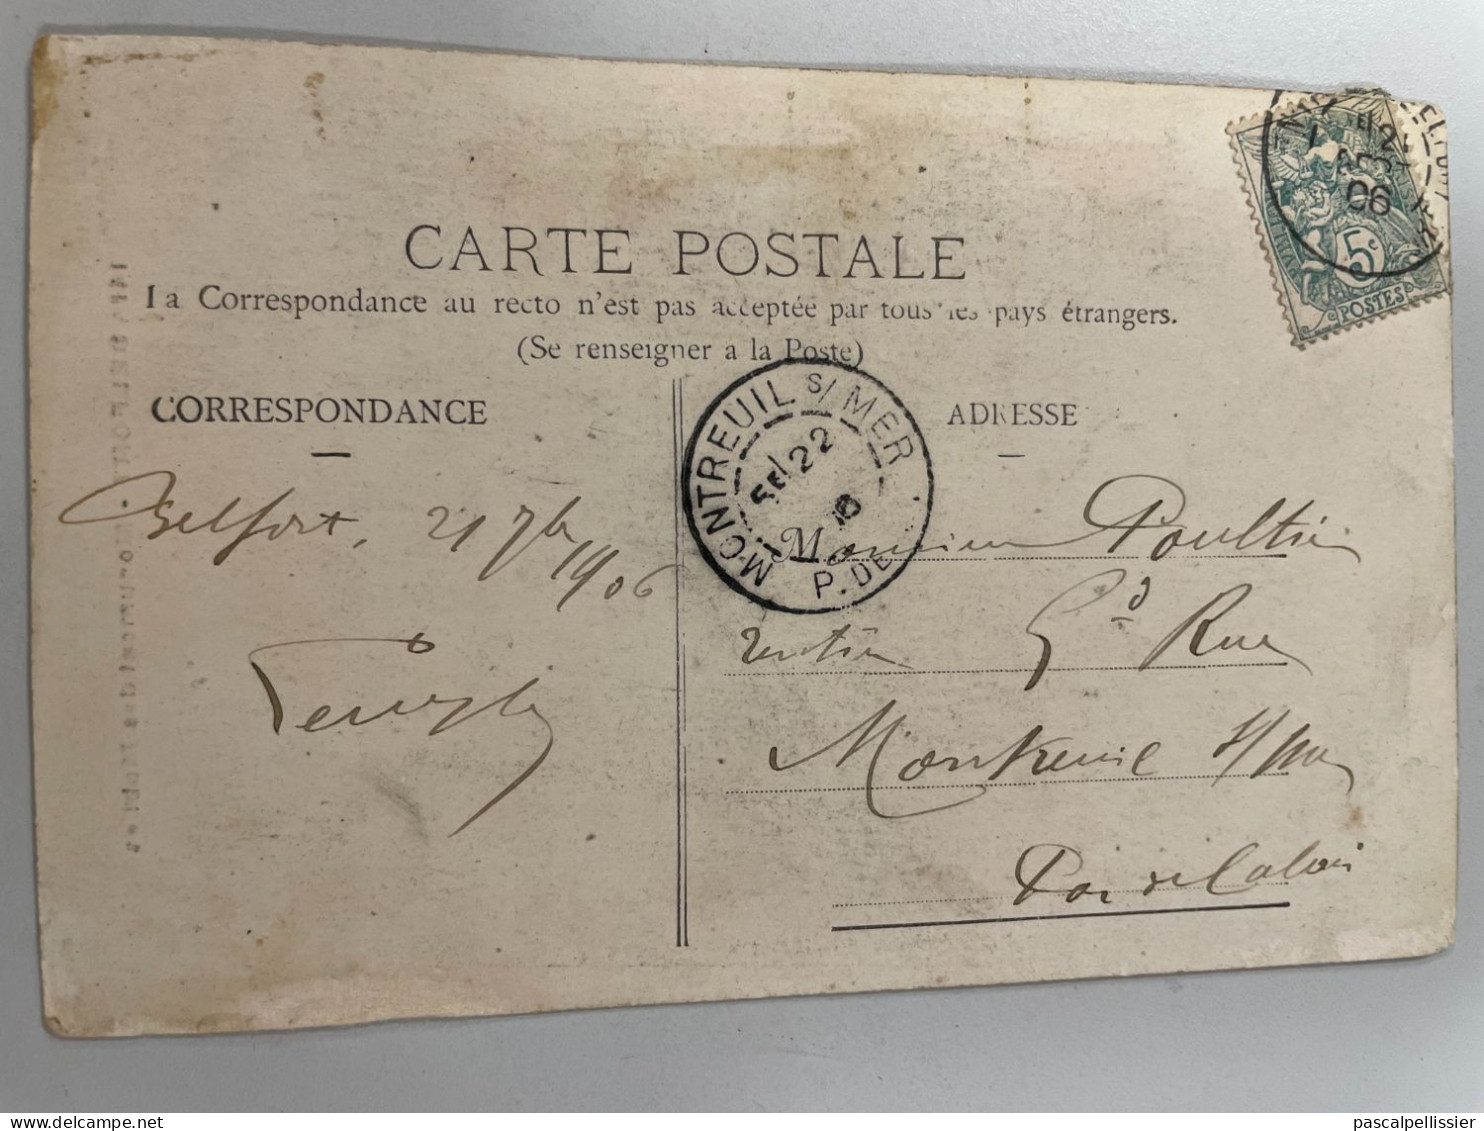 CARTE POSTALE
La Correspondance au recto n'est pas acceptée par tous les pays étrangers.
(Se renseigner a la Poste)
CORRESPONDANCE
ADRESSE
MONTREUIL S/ MER
22
P. DE
06
5c
POSTES
Belfort, 21 7bre
1906
Monsieur Poultier
rentier Gde Rue
Montreuil s/mer
Pas de Calais
pascalpellissier